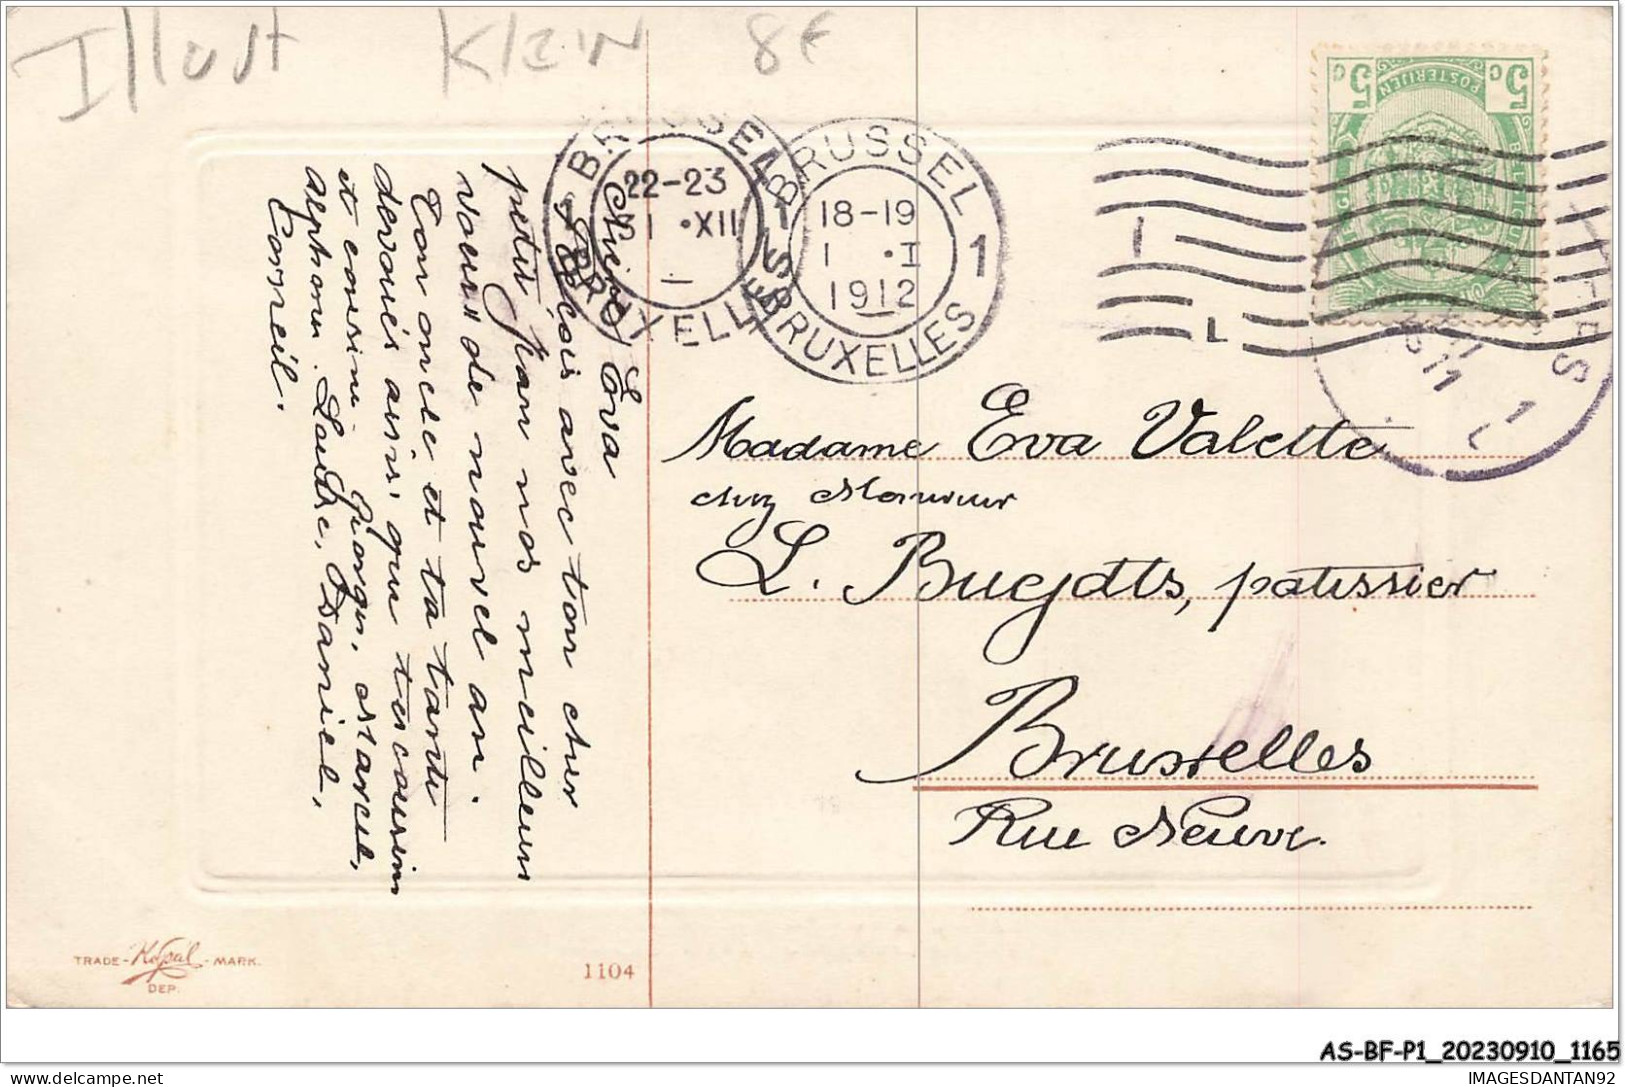 Illust Klein 8€
5 C POSTERIJEN 5 C
BRUSSEL 1
22-23
31 •XII
BRUXELLES
BRUSSEL 1
18-19
1 •I
1912
BRUXELLES
L
Chère Eva
Reçois avec ton cher
petit Jean nos meilleurs
voeux de nouvel an.
Ton oncle et ta tante
dévoués ainsi que tes cousins
et cousine. Marcel,
Alphonse, Daniel,
Corneil.
Madame Eva Valette
chez Monsieur
L. patissier
Bruxelles
Rue Neuve.
TRADE - Kopal - MARK.
DEP.
1104
AS-BF-P1_20230910_1165
delcampe.net
IMAGESDANTAN92